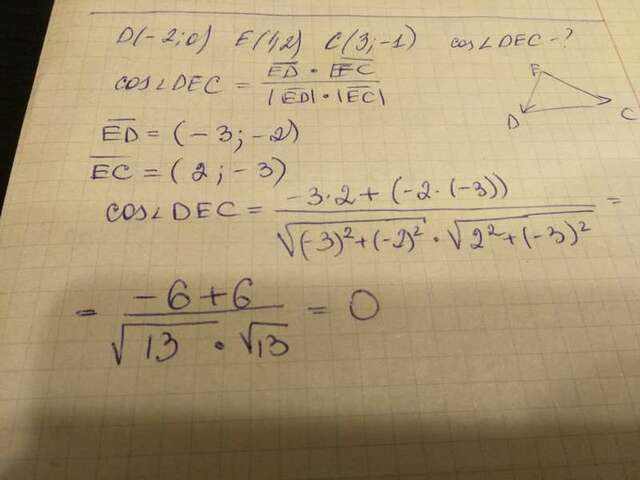 D(-2;0) E(1,2) C(3;-1) cos∠DEC-?
cos∠DEC = \frac{\overline{ED} · \overline{EC}}{|\overline{ED}| · |\overline{EC}|}
E
D
C
\overline{ED} = (-3;-2)
\overline{EC} = (2;-3)
cos∠DEC = \frac{-3·2+(-2·(-3))}{\sqrt{(-3)^2+(-2)^2} · \sqrt{2^2+(-3)^2}} =
= \frac{-6+6}{\sqrt{13} · \sqrt{13}} = 0